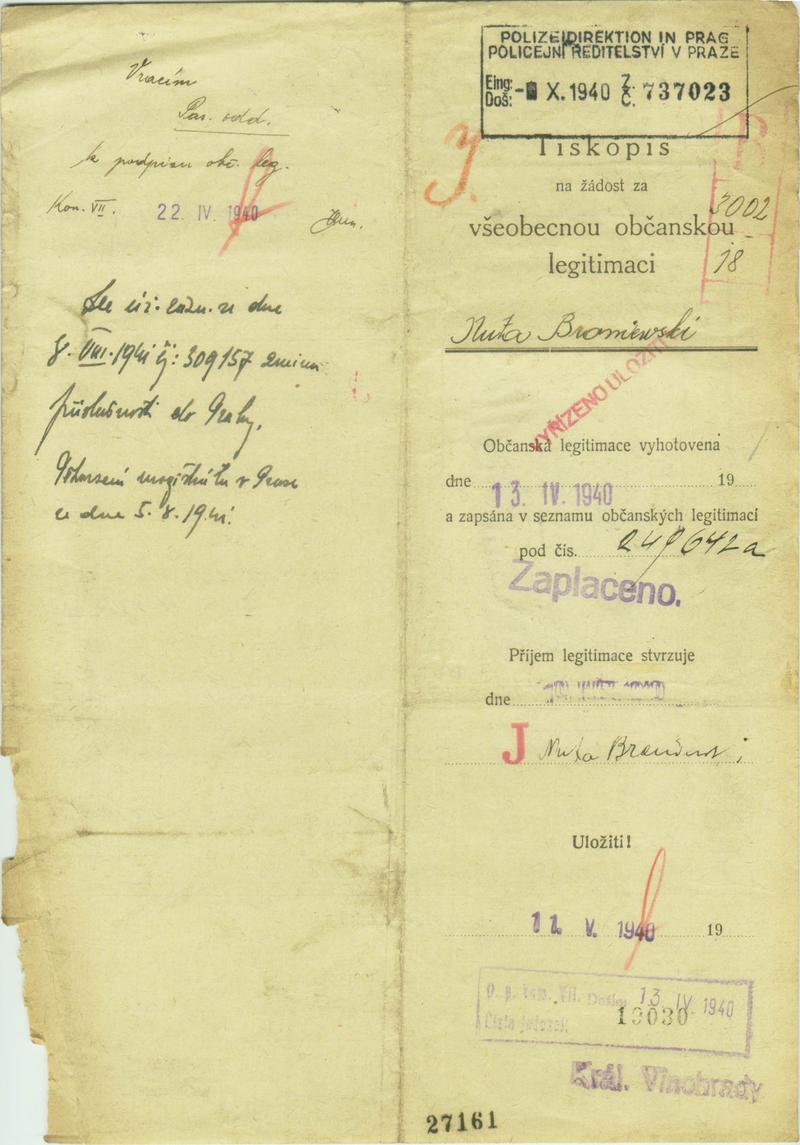 Vracím
Pas. odd.
k podpisu obč. leg.
Kon. VII.
22. IV. 1940
dne
8. VIII. 1941 čj: 309157
příslušnosti do Prahy.
Potvrzení magistrátu v Praze
ze dne 5. 8. 1941.
POLIZEIDIREKTION IN PRAG
POLICEJNÍ ŘEDITELSTVÍ V PRAZE
Eing: Doš: X. 1940 Z. Č. 737023
J.
Tiskopis
na žádost za
všeobecnou občanskou
legitimaci
3002
18
Nuta Broniewski
VYŘÍZENO ULOŽIT
Občanská legitimace vyhotovena
dne 13. IV. 1940 19
a zapsána v seznamu občanských legitimací
pod čis. 249642a
Zaplaceno.
Příjem legitimace stvrzuje
dne
J Nuta
Uložiti!
11. V. 1940 19
VII. Došlo: 13 IV 1940
19030
Král. Vinohrady
27161